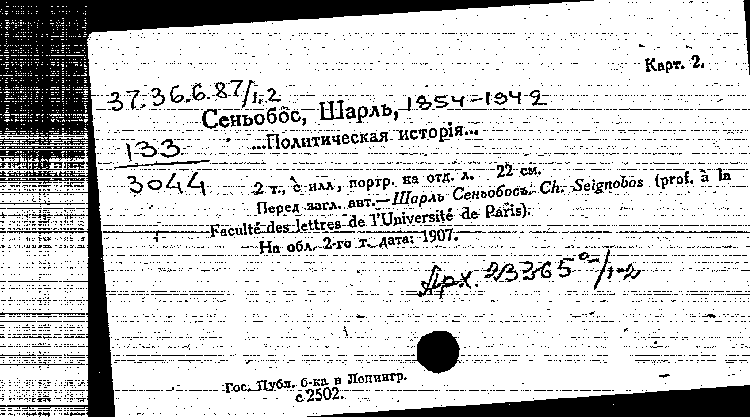 Карт. 2.
37.36.6.87/1.2
Сеньобос, Шарль, 1854-1942
133
...Политическая исторія...
3044
2 т., с илл., портр. на отд. л. 22 см.
Перед загл. авт.—Шарль Сеньобосъ. Ch. Seignobos (prof. à la
Faculté des lettres de l'Université de Paris).
На обл. 2-го т. дата: 1907.
Арх. 23365 /1-2
Гос. Публ. б-ка в Ленингр.
с.2502.